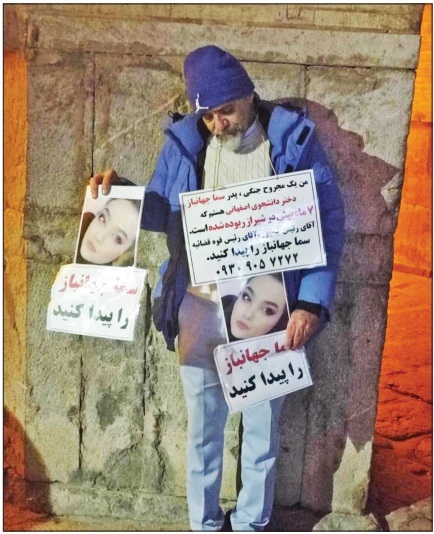 من یک مجروح جنگی، پدر سما جهانباز
دختر دانشجوی اصفهانی هستم که
۷ ماه پیش در شیراز ربوده شده است.
آقای رئیس آقای رئیس قوه قضائیه
سما جهانباز را پیدا کنید.
۰۹۳۰ ۹۰۵ ۷۲۷۲
سما جهانباز
را پیدا کنید
سما جهانباز
را پیدا کنید